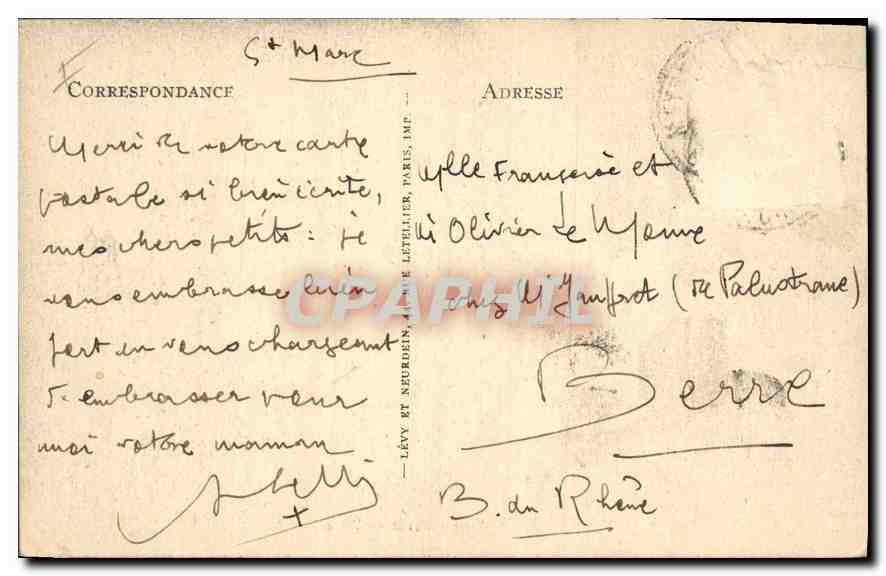 St Marc
CORRESPONDANCE
Merci de votre carte
postale si bien écrite,
mes chers petits : je
vous embrasse bien
fort en vous chargeant
d'embrasser pour
moi votre maman
— LÉVY ET NEURDEIN, 44, RUE LETELLIER, PARIS, IMP. —
ADRESSE
Mlle Françoise et
Mr Olivier Le
chez Mr Jauffret (de Palustrane)
Berre
B. du Rhône
CPAPHIL